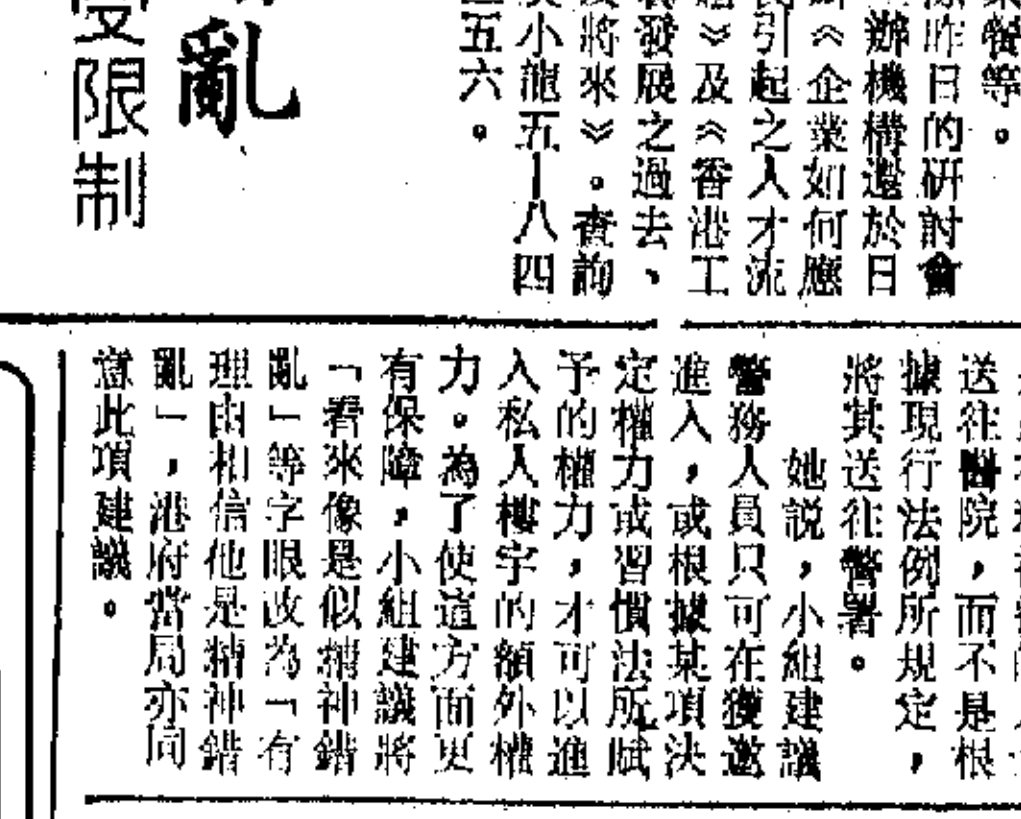 餐等。
昨日的研討會
辦機構還於日
《企業如何應
引起之人才流
》及《香港工
發展之過去、
將來》。查詢
小龍五—八四
五六。
亂
受限制
送往醫院，而不是根
據現行法例所規定，
將其送往警署。
她説，小組建議
警務人員只可在獲邀
進入，或根據某項決
定權力或習慣法所賦
予的權力，才可以進
入私人樓宇的額外權
力。為了使這方面更
有保障，小組建議將
「看來像是似精神錯
亂」等字眼改為「有
理由相信他是精神錯
亂」，港府當局亦同
意此項建議。